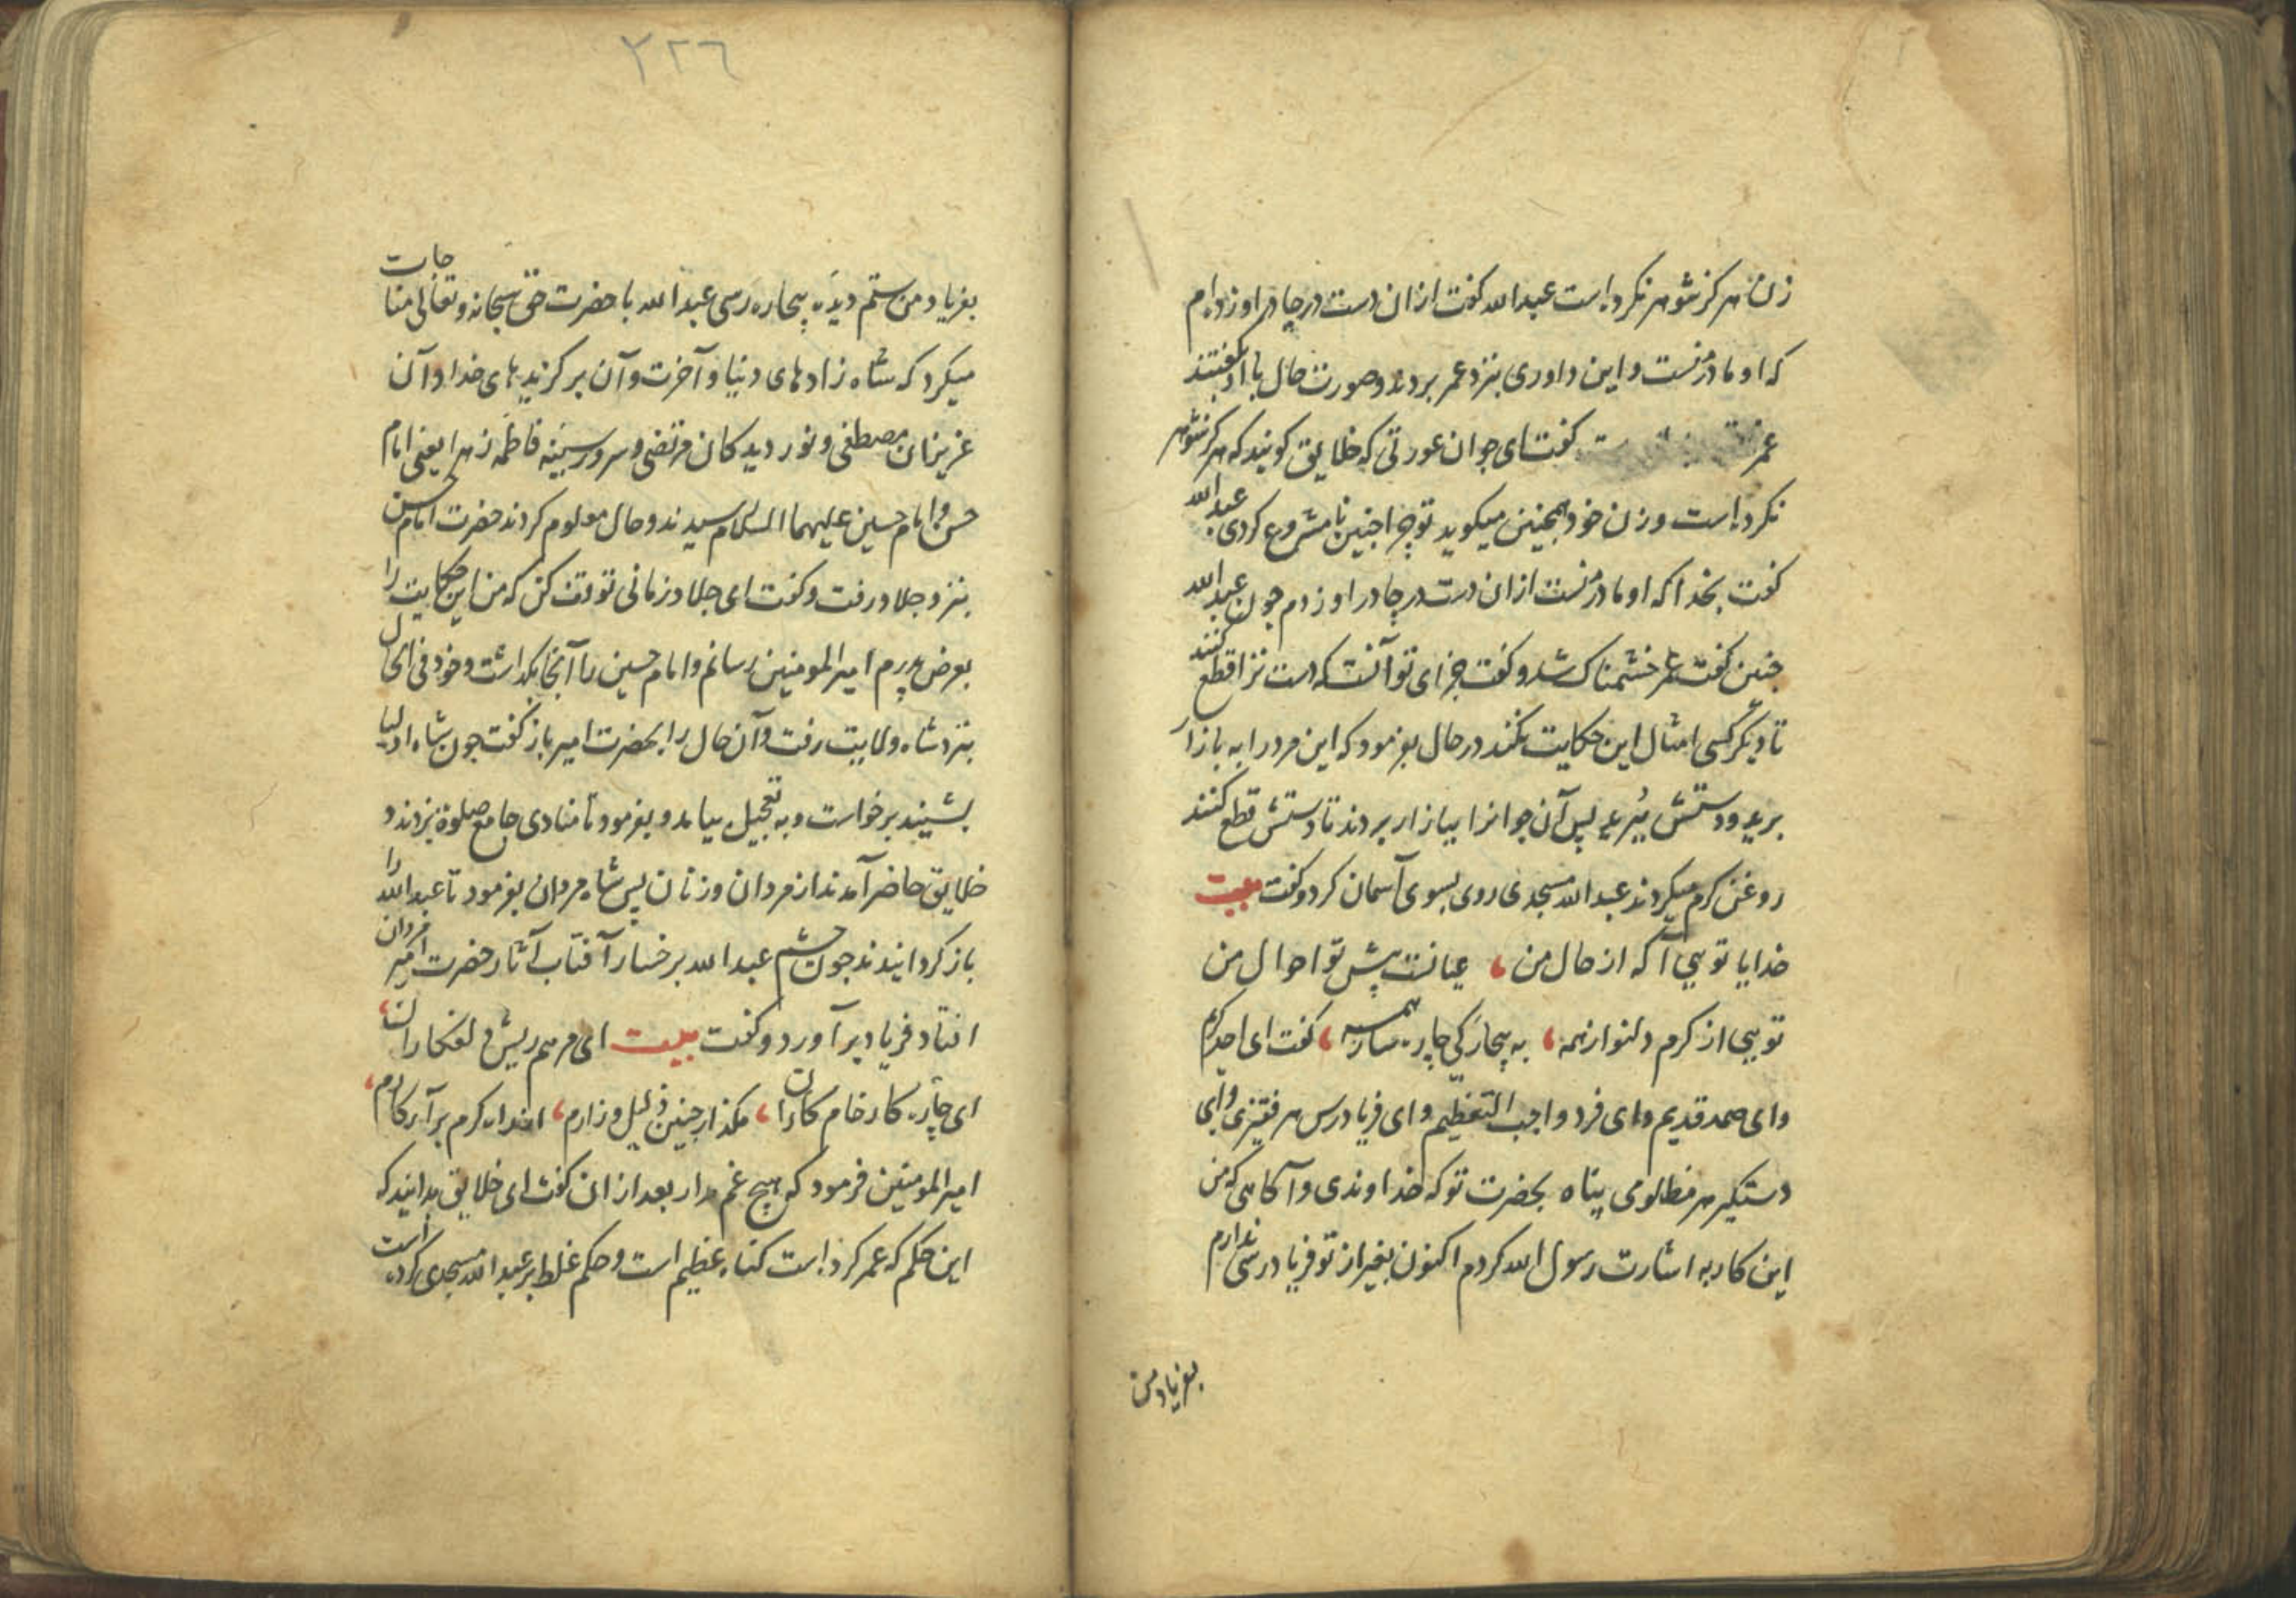 زن هرکز شوهر نکرده است عبدالله کفت ازان دست در چادر او زده ام
که او مادر منست و این داوری بنزد عمر بردند و صورت حال با او بکفتند
عمر کفت ای جوان عورتی که خلایق کویند که هرکز شوهر
نکرده است و زن خود همچنین میکوید تو چرا چنین نامشروع کردی عبدالله
کفت بخدا که او مادر منست ازان دست در چادر او زدم چون عبدالله
چنین کفت عمر خشمناک شد و کفت جزای تو آنست که دست ترا قطع کنند
تا دیکر کسی امثال این حکایت نکند در حال بفرمود که این مرد را به بازار
برید و دستش ببرید پس آن جوانرا ببازار بردند تا دستش قطع کنند
روغن کرم میکردند عبدالله مسجدی روی بسوی آسمان کرد و کفت بیت
خدایا تویی آکه از حال من ، عیانست پیش تو احوال من
تویی از کرم دلنواز همه ، به بیچارکی چاره ساز همه ، کفت ای احد کریم
و ای صمد قدیم و ای فرد واجب التعظیم و ای فریادرس هر فقیری و ای
دستکیر هر مظلومی پناه بحضرت تو که خداوندی و آکاهی که من
این کار به اشارت رسول الله کردم اکنون بغیر از تو فریادرسی ندارم
بفریاد من
٢٢٦
بفریاد من ستم دیده بیچاره رسی عبدالله با حضرت حق سبحانه و تعالی مناجات
میکرد که شاه زادهای دنیا و آخرت و آن برکزیدهای خدا و آن
عزیزان مصطفی و نور دیدکان مرتضی و سرور سینه فاطمه زهرا یعنی امام
حسن و امام حسین علیهما السلام رسیدند و حال معلوم کردند حضرت امام حسن
بنزد جلاد رفت و کفت ای جلاد زمانی توقف کن که من این حکایت را
بعرض پدرم امیر المومنین رسانم و امام حسین را آنجا بکذاشت و خود فی الحال
بنزد شاه ولایت رفت و آن حال را بحضرت امیر باز کفت چون شاه اولیا
بشنید برخواست و به تعجیل بیامد و بفرمود تا منادی جامع صلوة بزدند و
خلایق حاضر آمدند از مردان و زنان پس شاه مردان بفرمود تا عبدالله را
باز کردانیدند چون چشم عبدالله بر رخسار آفتاب آثار حضرت امیر مردان
افتاد فریاد برآورد و کفت بیت ای مرهم ریش دلفکاران ،
ای چاره کار خام کاران ، مکذار چنین ذلیل و زارم ، از راه کرم برآر کارم ،
امیر المومنین فرمود که هیچ غم مدار بعد ازان کفت ای خلایق بدانید که
این حکم که عمر کرده است کناه عظیم است و حکم غلط بر عبدالله مسجدی کرده است